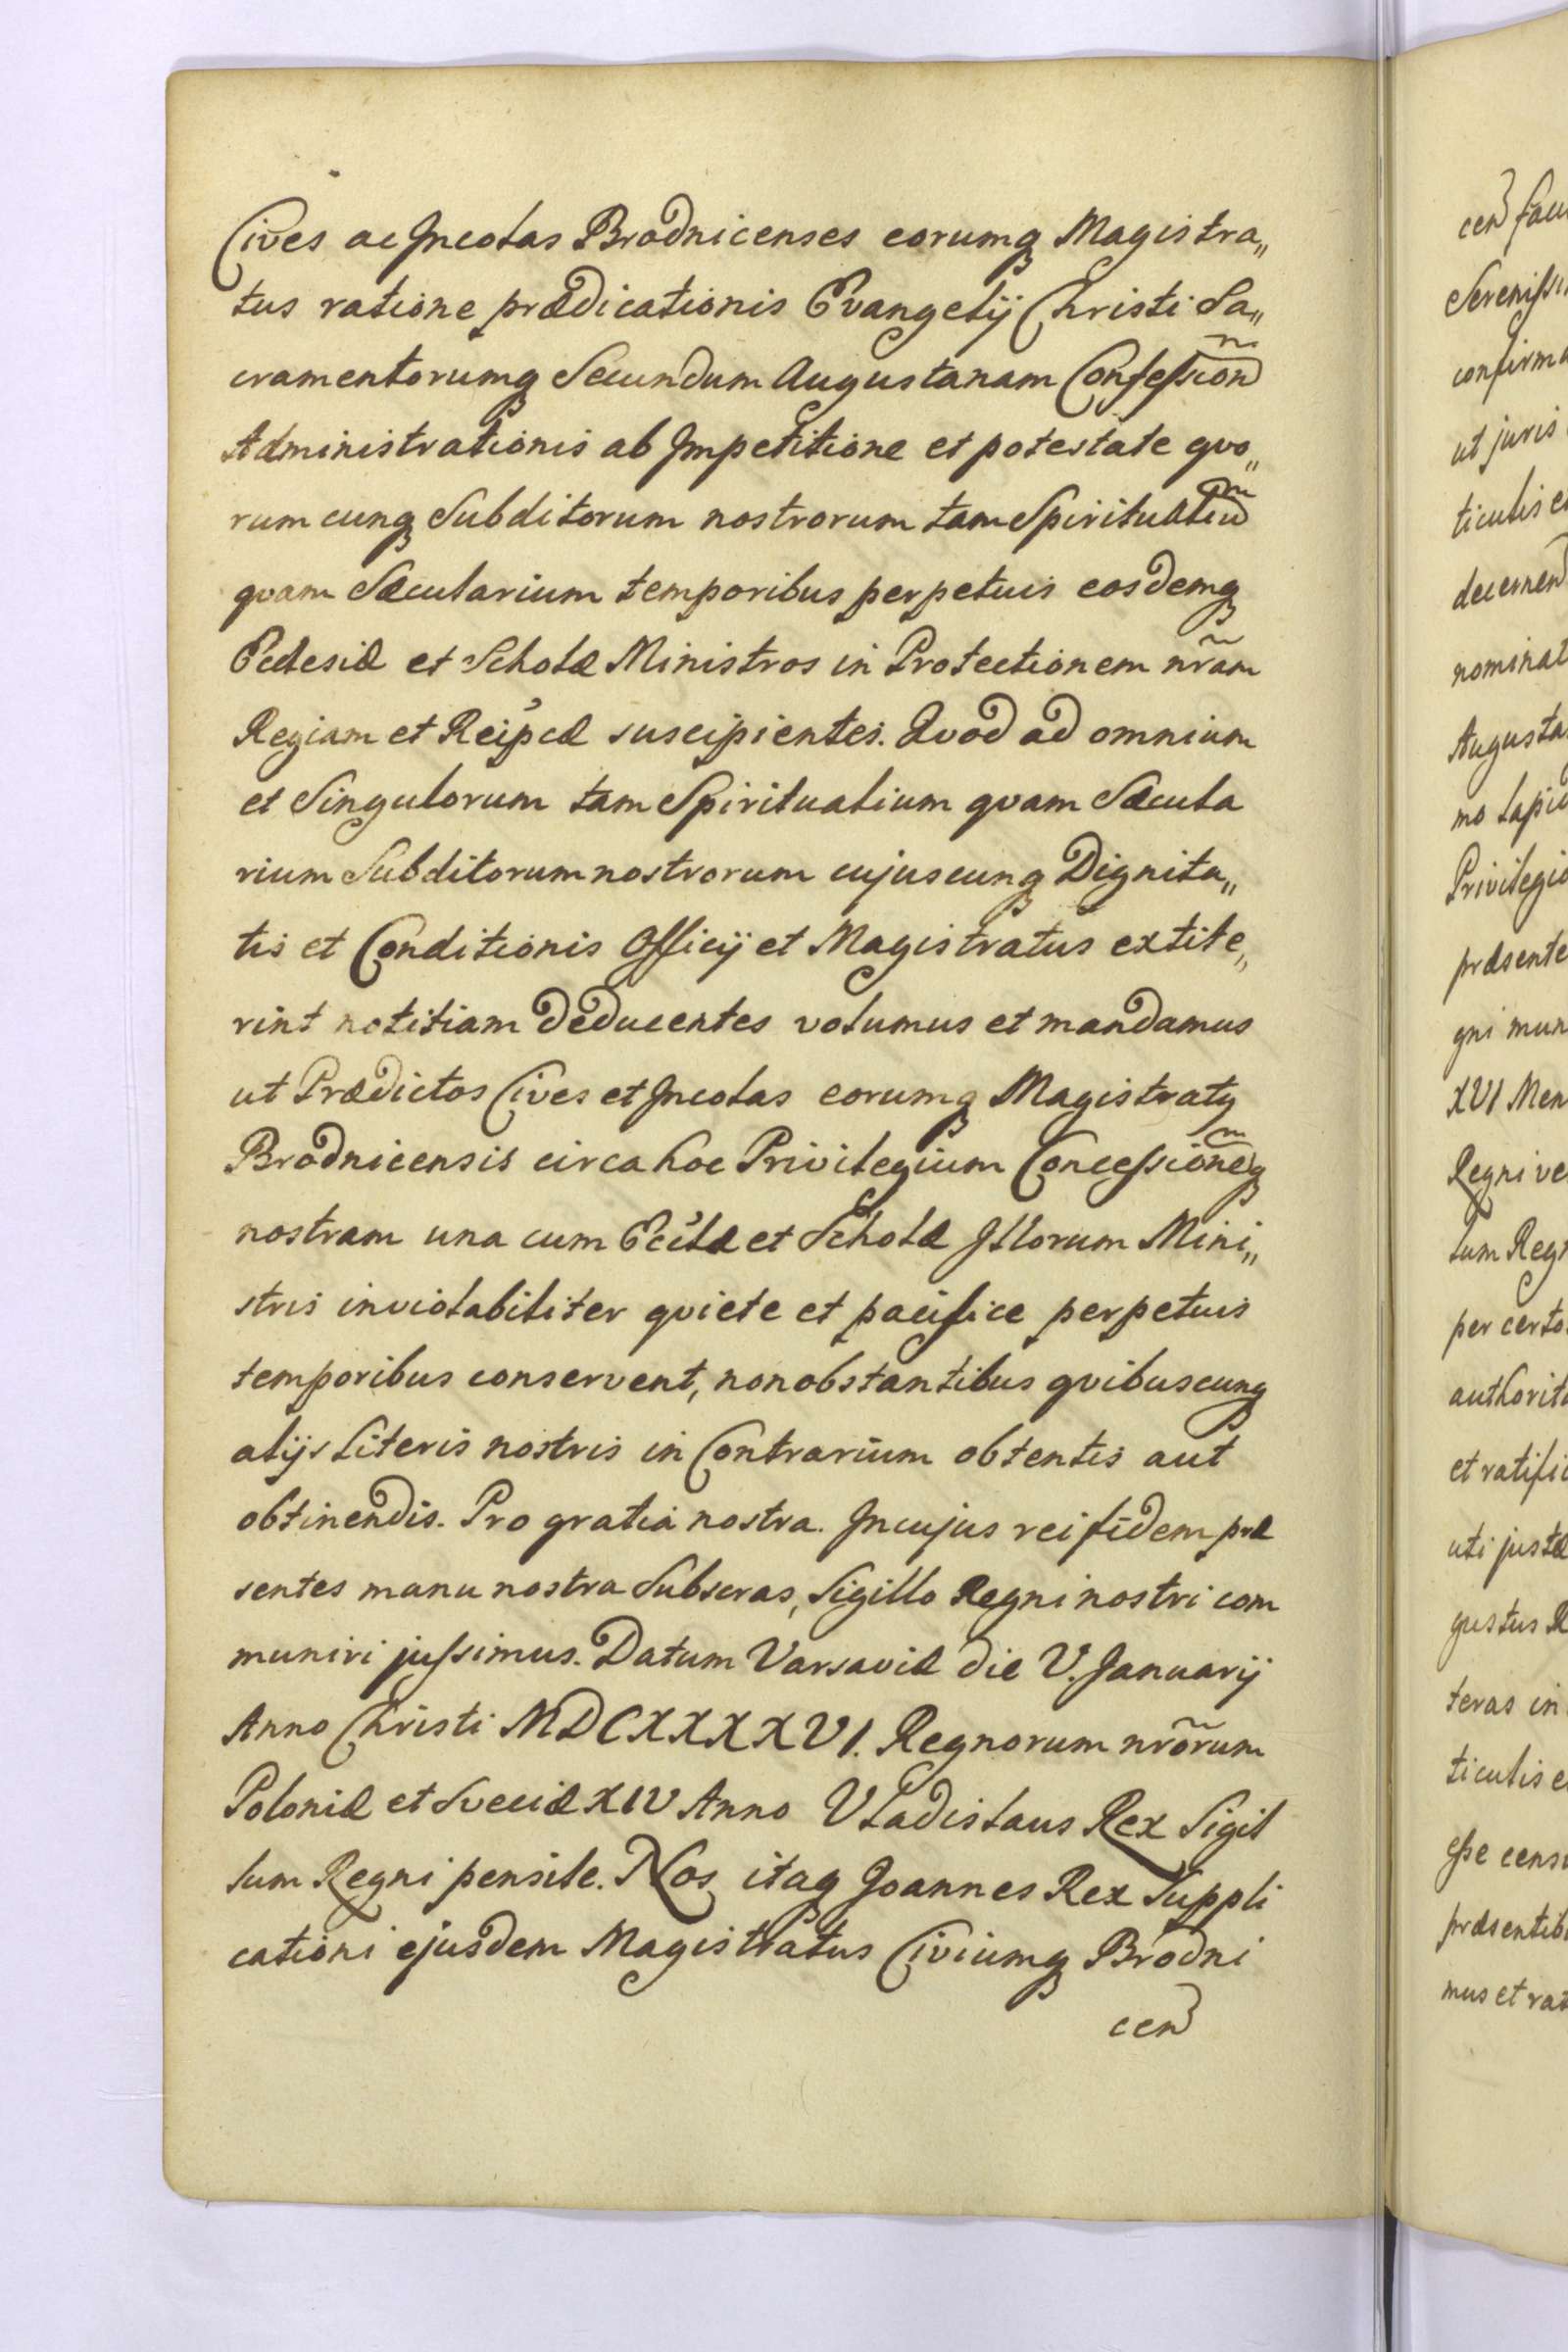 Cives ac Incolas Brodnicenses eorumq Magistra„
tus ratione prædicationis Evangelij Christi Sa„
cramentorumq Secundum Augustanam Confeſsion̄
Administrationis ab Impetitione et potestate qvo„
rum cunq Subditorum nostrorum tam Spiritualiū
qvam Sæcularium temporibus perpetuis eosdemq
Ecclesiæ et Scholæ Ministros in Protectionem nr̃am
Regiam et Reipcæ suscipientes. Qvod ad omnium
et Singulorum tam Spiritualium qvam Sæcula
rium Subditorum nostrorum cujuscunq Dignita„
tis et Conditionis Officij et Magistratus extite„
rint notitiam deducentes volumus et mandamus
ut Prædictos Cives et Incolas eorumq Magistratq
Brodnicensis circa hoc Privilegium Conceſsionēq
nostram una cum Eccl'æ et Scholæ Illorum Mini„
stris inviolabiliter qviete et pacifice perpetuis
temporibus conservent, nonobstantibus qvibuscunq
alijs Literis nostris in Contrarium obtentis aut
obtinendis. Pro gratia nostra. In cujus rei fidem præ
sentes manu nostra Subscras, Sigillo Regni nostri com
muniri juſsimus. Datum Varsaviæ die V. Januarij
Anno Christi MDCXXXXVI. Regnorum nr̃orum
Poloniæ et Sveciæ XIV Anno Vladislaus Rex Sigil
lum Regni pensile. Nos itaq Joannes Rex Suppli
cationi ejusdem Magistratus Civiumq Brodni
cen
cen fau
Sereniſsi
confirma
ut juris
ticulis e
decernen
nominat
Augusta
mo lapid
Privilegio
præsente
gni mun
XVI Men
Regni ve
lum Regn
per certo
authorita
et ratific
uti justæ
gustus R
teras in
ticulis e
eſse cens
præsentib
mus et rat